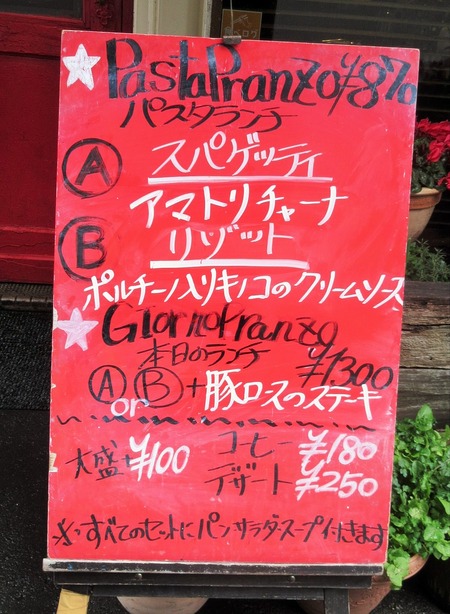 PastaPranzo ¥870
パスタランチ
A スパゲッティ
アマトリチャーナ
B リゾット
ポルチーノ入りキノコのクリームソース
GiornoPranzo
本日のランチ ¥1300
A or B + 豚ロースのステーキ
大盛+¥100
コーヒー ¥180
デザート ¥250
※すべてのセットにパンサラダスープ付きます